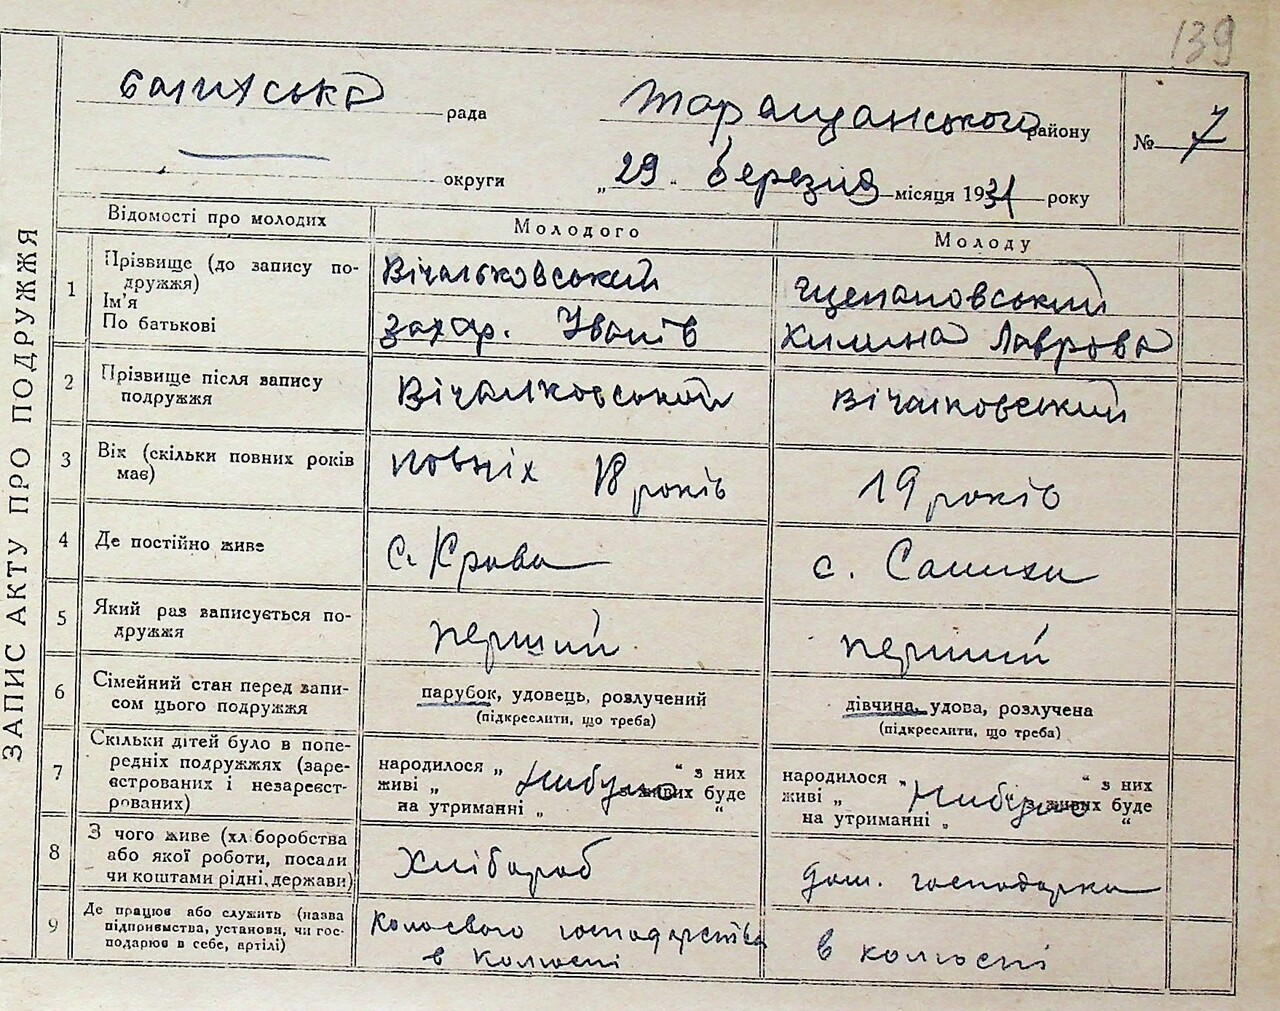 139
рада Таращанського району № 7
округи „ 29 " березня місяця 1931 року
ЗАПИС АКТУ ПРО ПОДРУЖЖЯ
Відомості про молодих Молодого Молоду
1 Прізвище (до запису подружжя)
Ім'я
По батькові
Захар. Іванів
Лаврова
2 Прізвище після запису
подружжя
3 Вік (скільки повних років
має)
повніх 18 років 19 років
4 Де постійно живе
с. с.
5 Який раз записується по-
дружжя
перший перший
6 Сімейний стан перед запи-
сом цього подружжя
парубок, удовець, розлучений дівчина, удова, розлучена
(підкреслити, що треба) (підкреслити, що треба)
7 Скільки дітей було в попе-
редніх подружжях (заре-
єстрованих і незареєст-
рованих)
народилося „ Нибуло " з них народилося „ Нибуло " з них
живі „ з живих буде живі „ з живих буде
на утриманні „ " на утриманні „ "
8 З чого живе (хліборобства
або якої роботи, посади
чи коштами рідні, держави)
Хлібороб дом. господарка
9 Де працює або служить (назва
підприємства, установи, чи гос-
подарює в себе, артілі)
господарства
в в